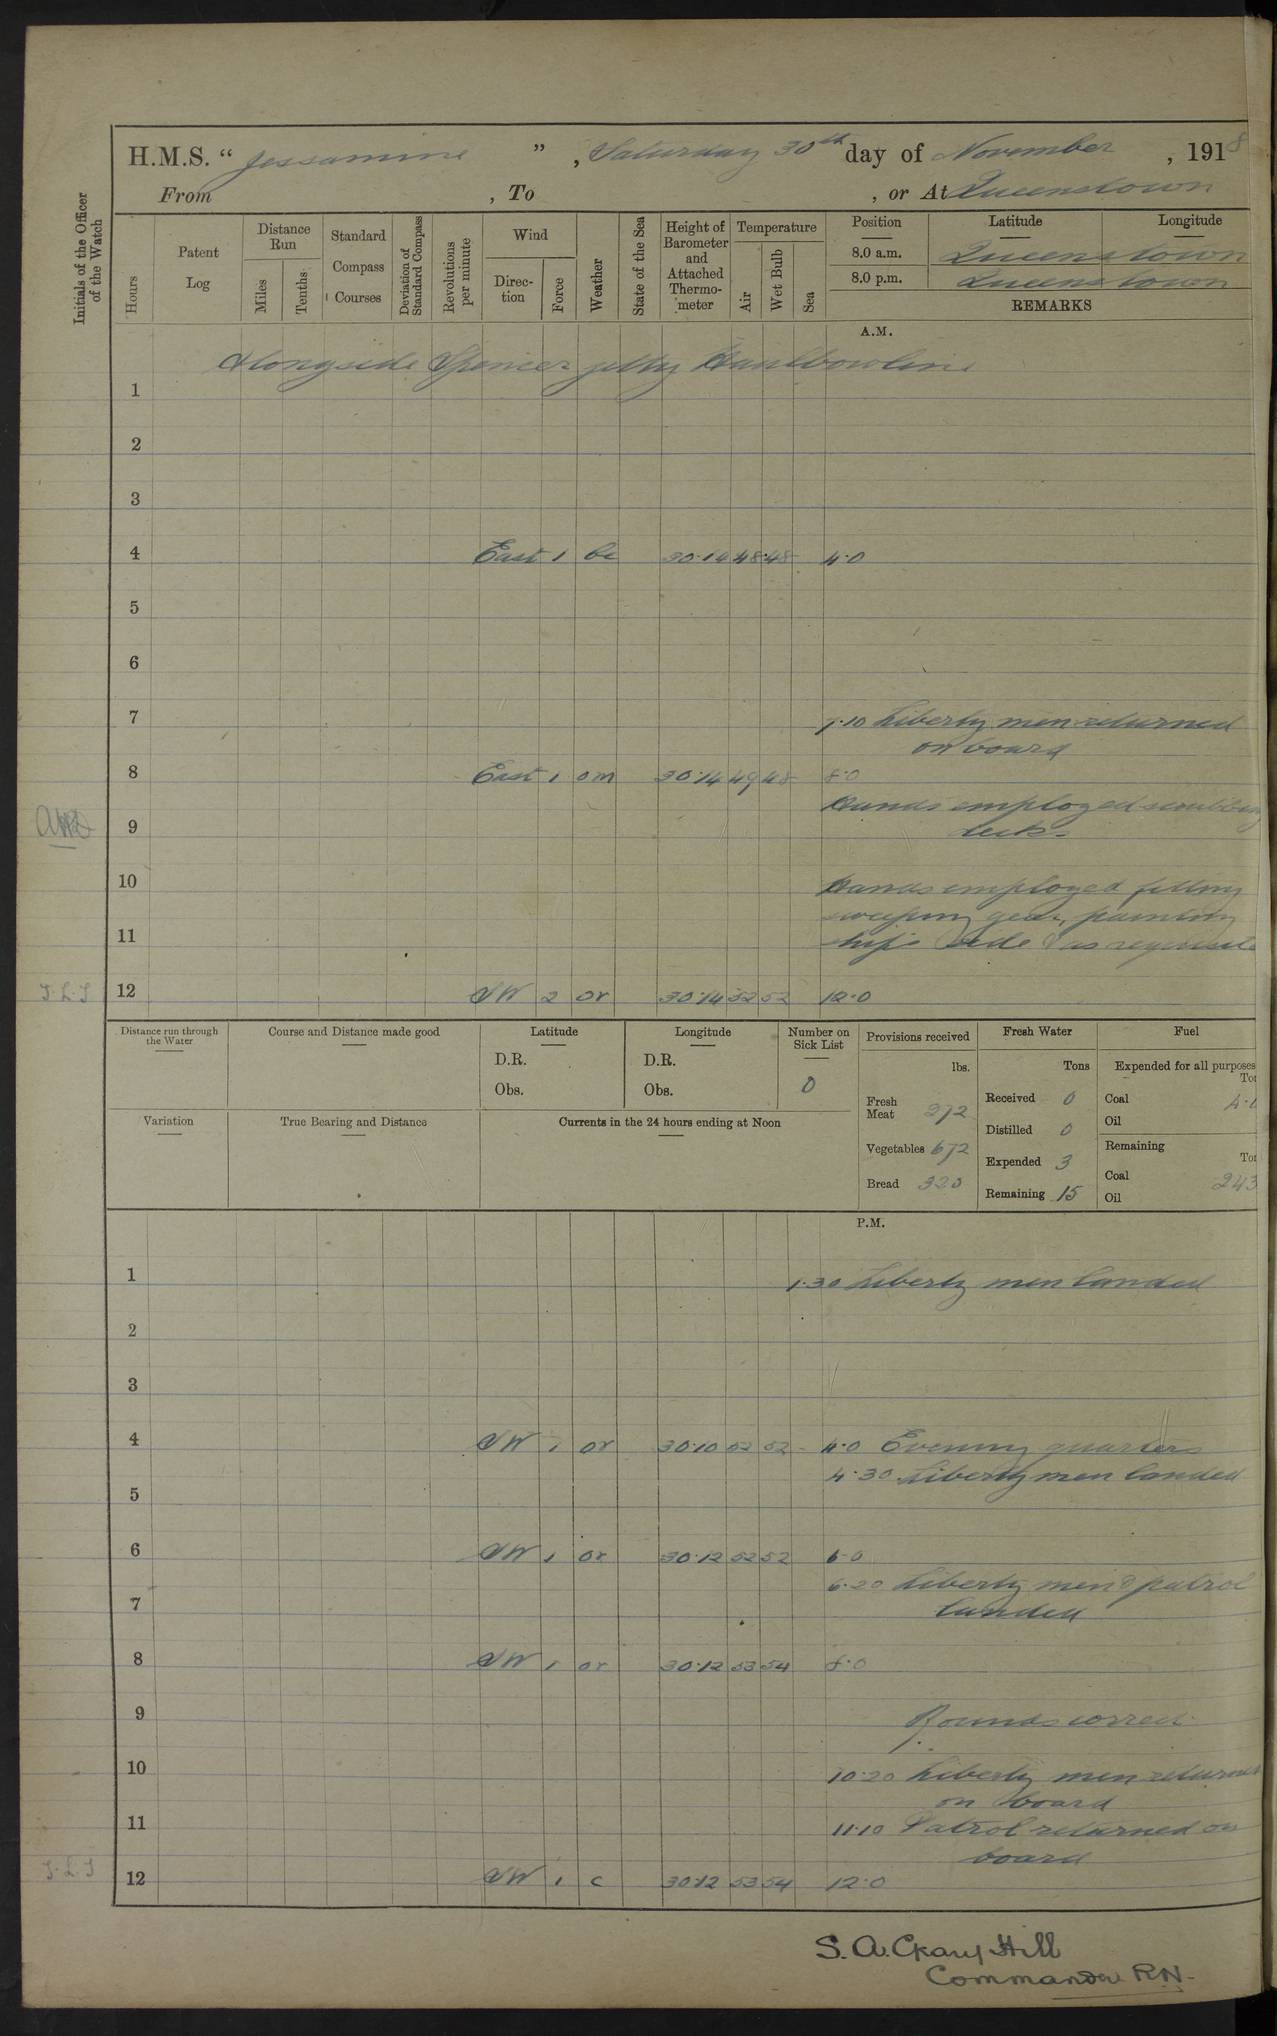 H.M.S. “Jessamine”, Saturday 30th day of November, 1918
From , To , or At Queenstown
Initials of the Officer of the Watch
Hours
Patent Log
Distance Run
Miles
Tenths
Standard Compass Courses
Deviation of Standard Compass
Revolutions per minute
Wind
Direction
Force
Weather
State of the Sea
Height of Barometer and Attached Thermometer
Temperature
Air
Wet Bulb
Sea
Position Latitude Longitude
8.0 a.m. Queenstown
8.0 p.m. Queenstown
REMARKS
A.M.
Alongside Spencer jetty Haulbowline
1
2
3
4 East 1 bc 30.14 48 48 4.0
5
6
7 7.10 Liberty men returned
on board
8 East 1 om 30.14 49 48 8.0
Hands employed scrubbing
9 deck.
10 Hands employed fitting
sweeping gear, painting
11 ships side & as requisite
J.L.J 12 SW 2 or 30.14 52 52 12.0
Distance run through the Water
Course and Distance made good
Latitude
D.R.
Obs.
Longitude
D.R.
Obs.
Number on Sick List
0
Provisions received
lbs.
Fresh Meat 272
Vegetables 672
Bread 320
Fresh Water
Tons
Received 0
Distilled 0
Expended 3
Remaining 15
Fuel
Expended for all purposes
Coal
Oil
Remaining
Coal 243
Oil
Variation
True Bearing and Distance
Currents in the 24 hours ending at Noon
P.M.
1 1.30 Liberty men landed
2
3
4 SW 1 or 30.10 52 52 4.0 Evening quarters
4.30 Liberty men landed
5
6 SW 1 or 30.12 52 52 6.0
6.20 Liberty men & patrol
7 landed
8 SW 1 or 30.12 53 54 8.0
9 Rounds correct.
10 10.20 Liberty men returned
on board
11 11.10 Patrol returned on
board
J.L.J 12 SW 1 c 30.12 53 54 12.0
S. A. Geary Hill
Commander RN.